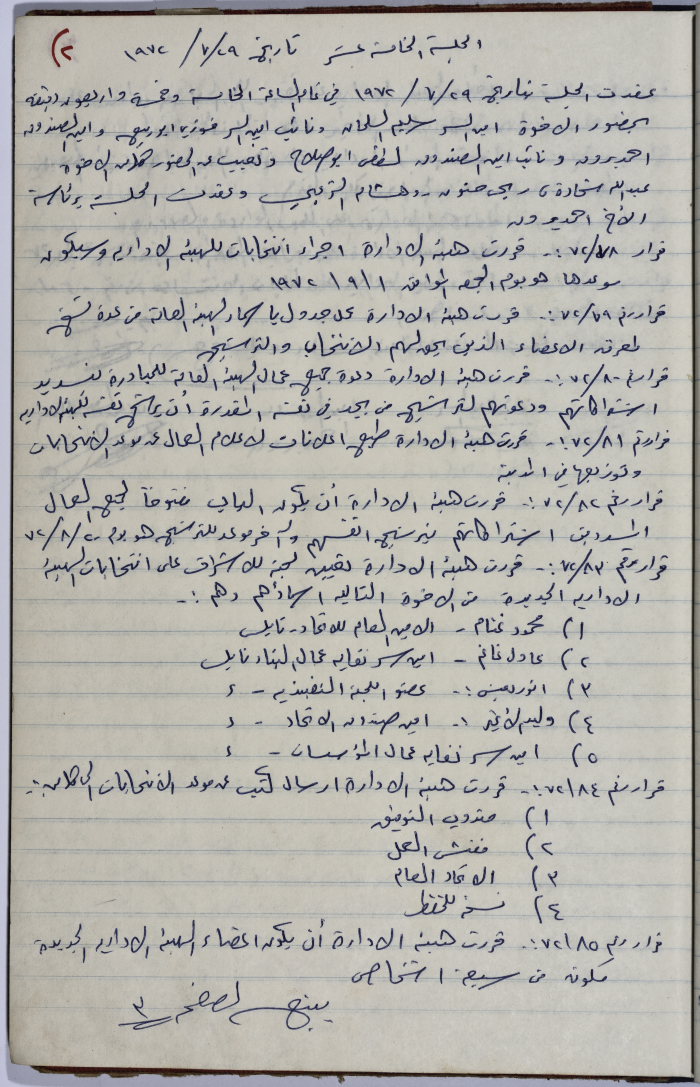 ٢)
الجلسة الخامسة عشر تاريخ ٢٩/٧/١٩٧٢
عقدت الجلسة بتاريخ ٢٩/٧/١٩٧٢ في تمام الساعة الخامسة وخمسة واربعون دقيقه
بحضور الاخوة امين السر سليم السلمان ونائب امين السر فوزي ابو ربيع وامين الصندوق
احمد ونائب امين الصندوق لطفي ابو صلاح وتغيب عن الحضور كلا من الاخوة
عبدالله شحادة وهشام وعقدت الجلسة برئاسة
الأخ احمد
قرار ٧٢/٧٨ :- قررت هيئة الادارة اجراء انتخابات للهيئة الاداريه وسيكون
موعدها هو يوم الجمعه الموافق ١/٩/١٩٧٢
قرار رقم ٧٢/٧٩ :- قررت هيئة الادارة عمل جدول باسماء الهيئة العامة من عدة نسخ
لمعرفة الاعضاء الذين يحق لهم الانتخاب والترشيح
قرار رقم ٧٢/٨٠ :- قررت هيئة الادارة دعوة جميع عمال الهيئة العامة للمبادرة لتسديد
اشتراكاتهم ودعوتهم للترشيح من يجد في نفسه المقدرة أن يرشح نفسه للهيئة الاداريه
قرار رقم ٧٢/٨١ :- قررت هيئة الادارة طبع اعلانات لاعلام العمال عن موعد الانتخابات
وتوزيعها في المدينة
قرار رقم ٧٢/٨٢ :- قررت هيئة الادارة أن يكون الباب مفتوحاً لجميع العمال
المسددين اشتراكاتهم بترشيح انفسهم وآخر موعد للترشيح هو يوم ٢٠/٨/٧٢
قرار رقم ٧٢/٨٣ :- قررت هيئة الادارة تعيين لجنة للاشراف على انتخابات الهيئة
الاداريه الجديدة من الاخوة التاليه اسماؤهم وهم :-
١) محمود غنام - الامين العام للاتحاد - نابلس
٢) عادل غانم - امين سر نقابه عمال البناء نابلس
٣) انور :- عضو اللجنة التنفيذيه - ء
٤) وليد :- امين صندوق الاتحاد - ء
٥) امين سر نقابه عمال المؤسسات - ء
قرار رقم ٧٢/٨٤ :- قررت هيئة الادارة ارسال كتب عن موعد الانتخابات الى كلا من :-
١) مندوب التوفيق
٢) مفتش العمل
٣) الاتحاد العام
٤) نسخه للحفظ
قرار رقم ٧٢/٨٥ :- قررت هيئة الادارة أن يكون اعضاء الهيئة الاداريه الجديدة
مكونه من سبعة اشخاص
يتبع لصفحه ٣